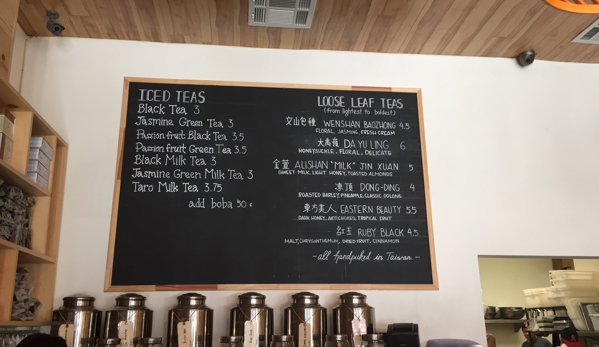 ICED TEAS
Black Tea 3
Jasmine Green Tea 3
Passion fruit Black Tea 3.5
Passion fruit Green Tea 3.5
Black Milk Tea 3
Jasmine Green Milk Tea 3
Taro Milk Tea 3.75
add boba 50¢
LOOSE LEAF TEAS
(from lightest to boldest)
文山包種 WENSHAN BAOZHONG 4.5
FLORAL, JASMINE, FRESH CREAM
大禹嶺 DA YU LING 6
HONEYSUCKLE, FLORAL, DELICATE
金萱 ALISHAN "MILK" JIN XUAN 5
SWEET MILK, LIGHT HONEY, TOASTED ALMONDS
凍頂 DONG-DING 4
ROASTED BARLEY, PINEAPPLE, CLASSIC OOLONG
東方美人 EASTERN BEAUTY 5.5
DARK HONEY, ARTICHOKES, TROPICAL FRUIT
紅玉 RUBY BLACK 4.5
MALT, CHRYSANTHEMUM, DRIED FRUIT, CINNAMON
- all handpicked in Taiwan -